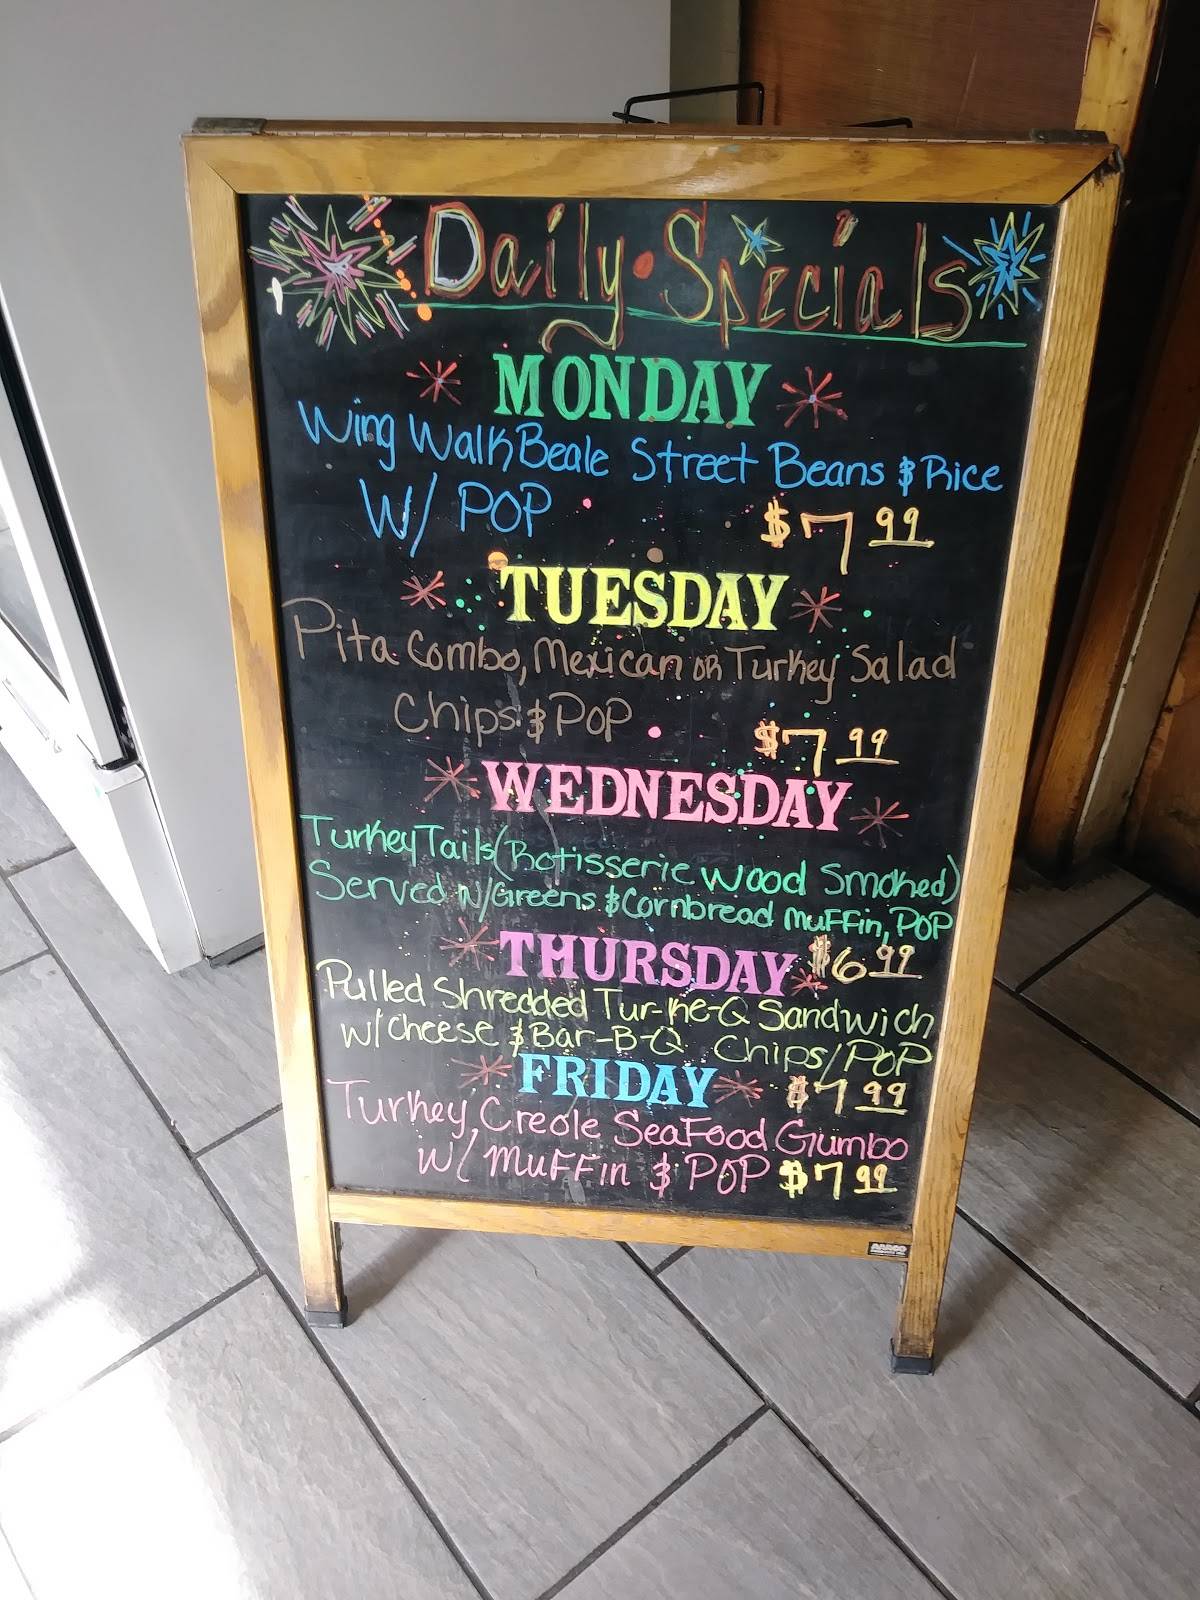 Daily Specials
MONDAY
Wing Walk Beale Street Beans & Rice
W/ POP
$7 99
TUESDAY
Pita Combo, Mexican OR Turkey Salad
Chips & POP
$7 99
WEDNESDAY
Turkey Tails (Rotisserie Wood Smoked)
Served W/Greens & Cornbread muffin, POP
$6 99
THURSDAY
Pulled Shredded Tur-Ke-Q Sandwich
w/ Cheese & Bar-B-Q Chips/POP
$7 99
FRIDAY
Turkey, Creole SeaFood Gumbo
w/ muFFin & POP $7 99